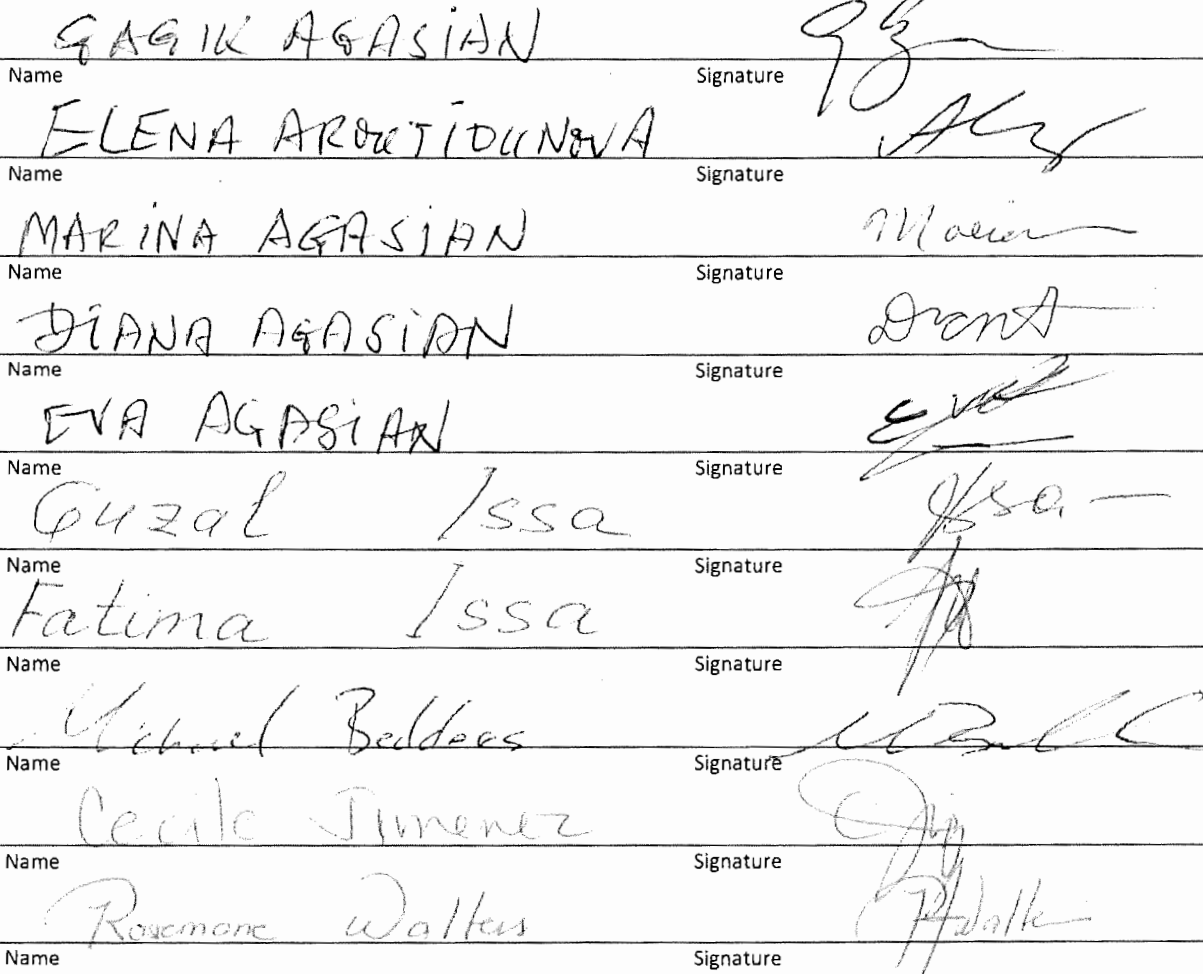 GAGIK AGASIAN
Name Signature
ELENA AROUTIOUNOVA
Name Signature
MARINA AGASIAN
Name Signature
DIANA AGASIAN
Name Signature
EVA AGASIAN Eva
Name Signature
Guzal Issa Issa
Name Signature
Fatima Issa
Name Signature
Michael Beddoes
Name Signature
Cecile Jimenez
Name Signature
Rosemarie Walters
Name Signature